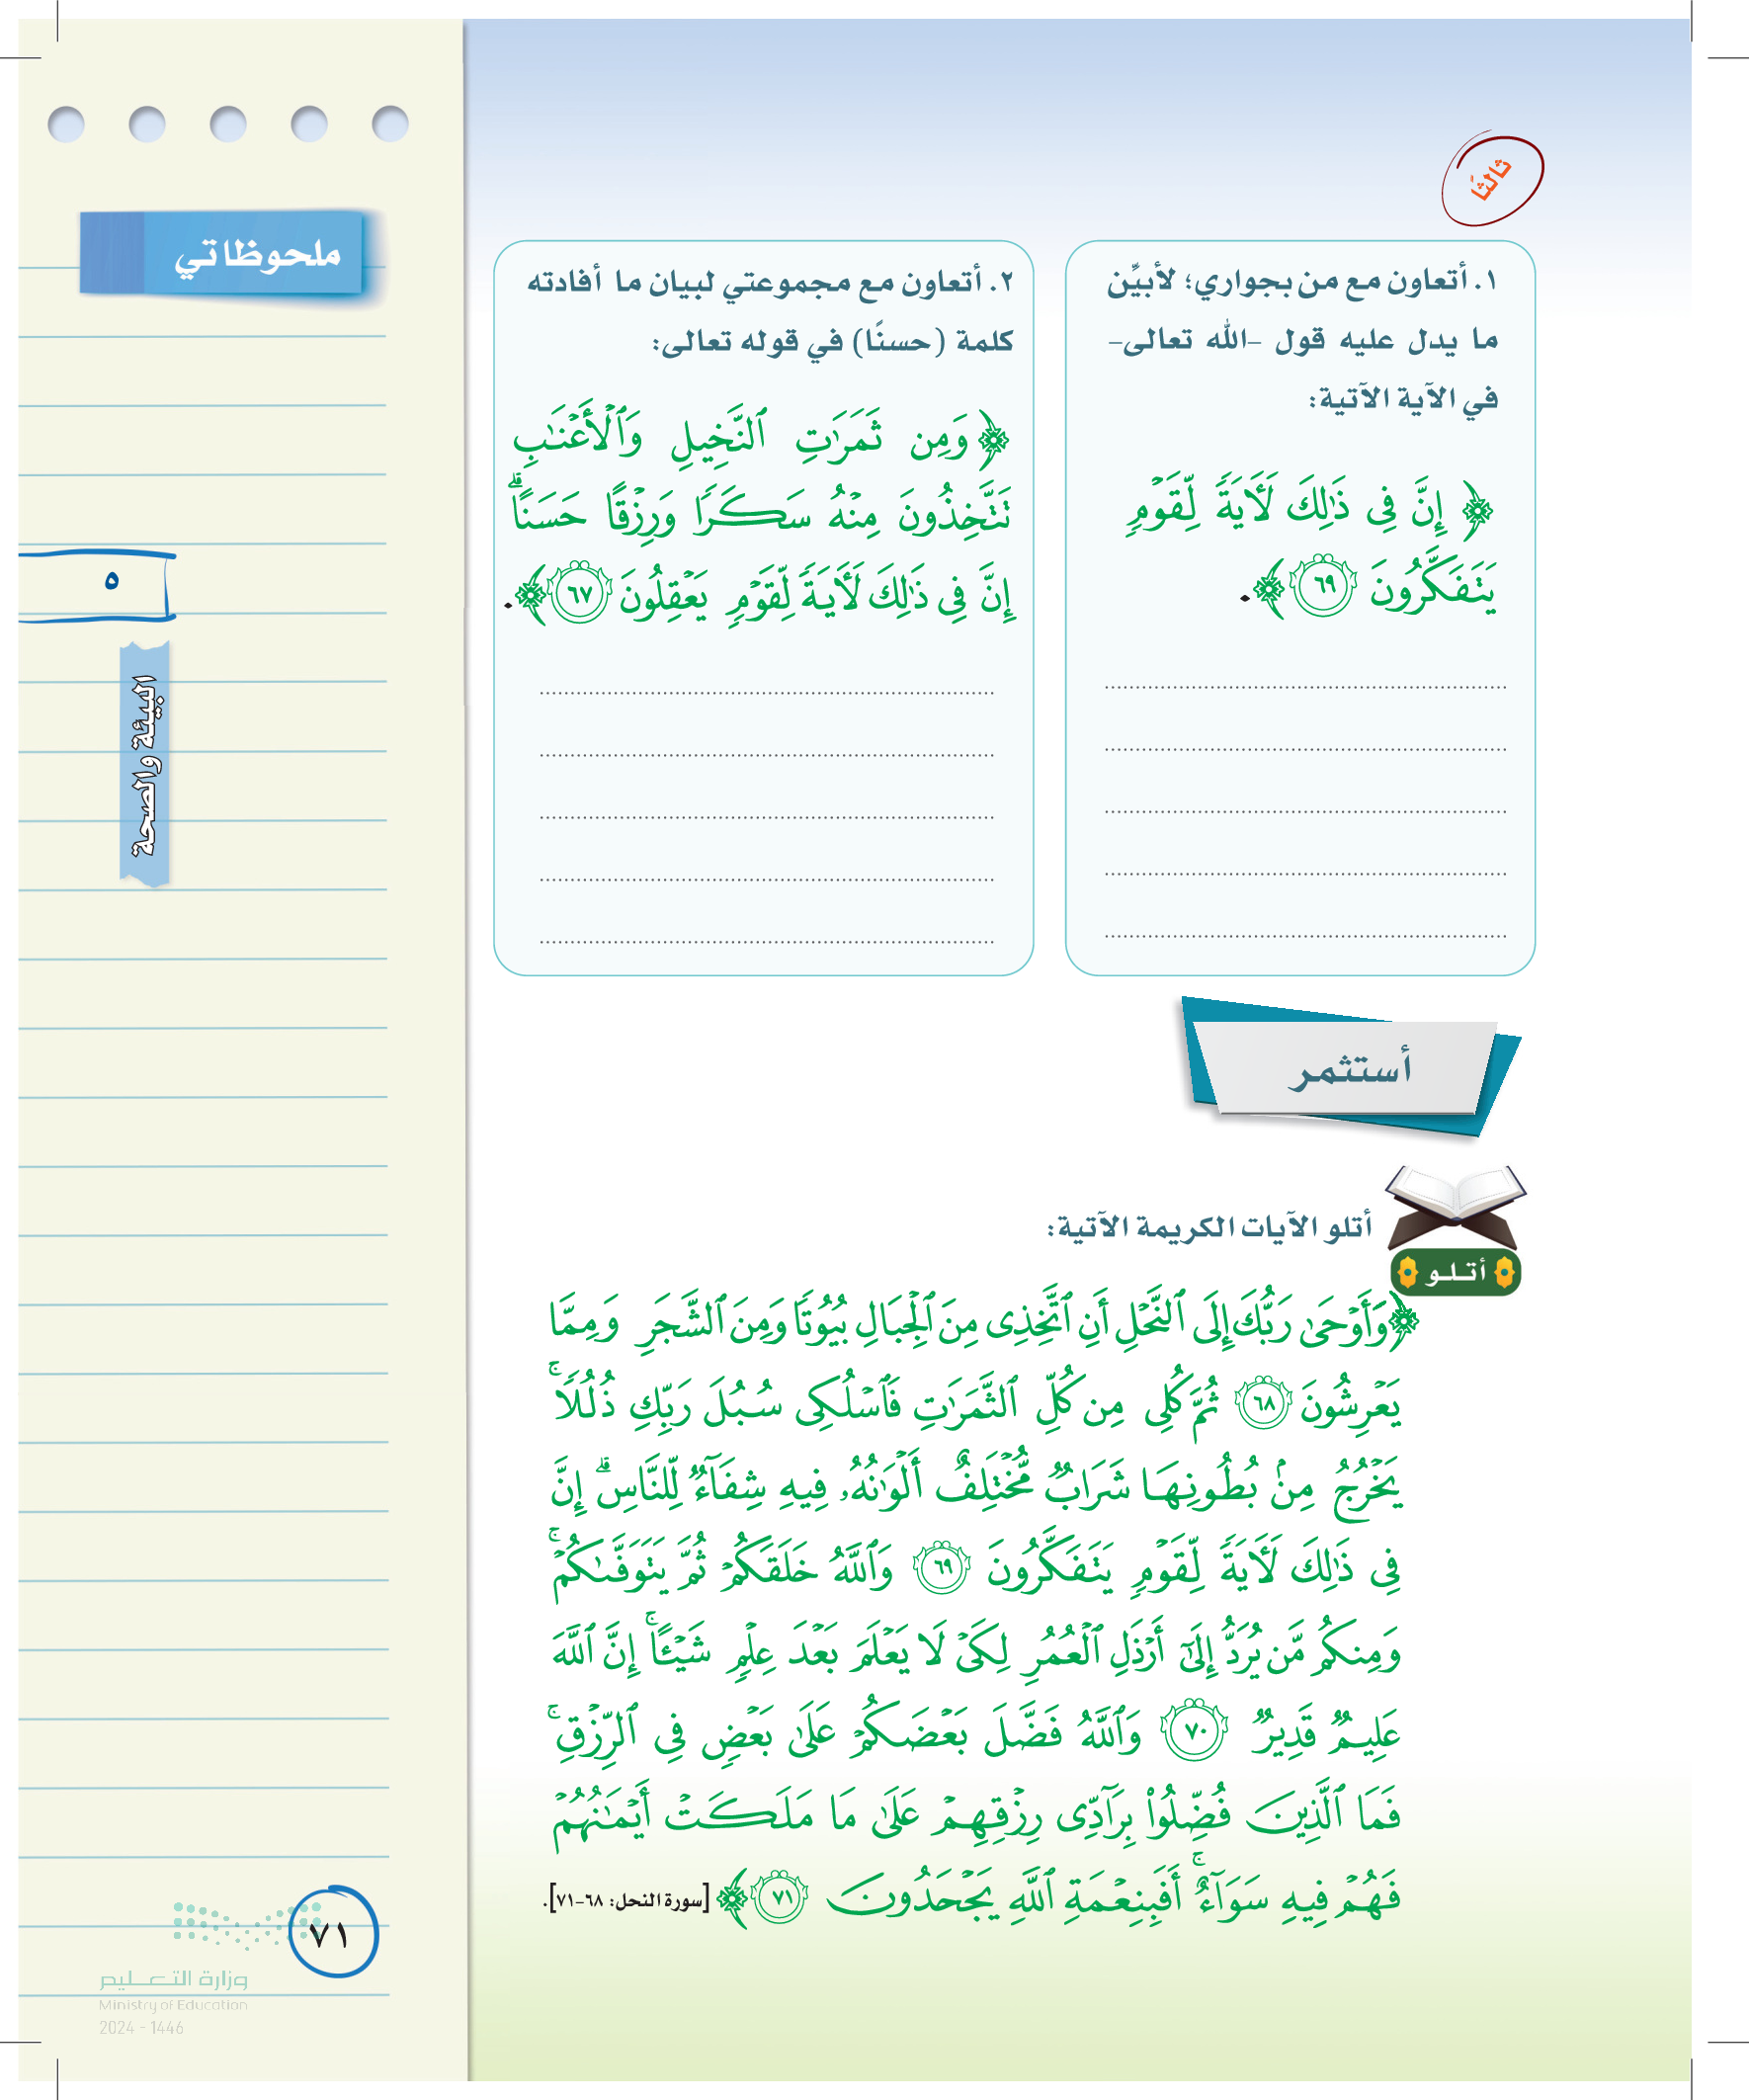 ثالثًا
١. أتعاون مع من بجواري؛ لأبيِّن
ما يدل عليه قول –الله تعالى–
في الآية الآتية:
﴿ إِنَّ فِى ذَٰلِكَ لَـَٔايَةً لِّقَوْمٍ
يَتَفَكَّرُونَ ٦٩ ﴾.
٢. أتعاون مع مجموعتي لبيان ما أفادته
كلمة (حسنًا) في قوله تعالى:
﴿ وَمِن ثَمَرَٰتِ ٱلنَّخِيلِ وَٱلْأَعْنَٰبِ
تَتَّخِذُونَ مِنْهُ سَكَرًا وَرِزْقًا حَسَنًا ۗ
إِنَّ فِى ذَٰلِكَ لَـَٔايَةً لِّقَوْمٍ يَعْقِلُونَ ٦٧ ﴾.
أستثمر
أتلو الآيات الكريمة الآتية:
أتلو
﴿وَأَوْحَىٰ رَبُّكَ إِلَى ٱلنَّحْلِ أَنِ ٱتَّخِذِى مِنَ ٱلْجِبَالِ بُيُوتًا وَمِنَ ٱلشَّجَرِ وَمِمَّا
يَعْرِشُونَ ٦٨ ثُمَّ كُلِى مِن كُلِّ ٱلثَّمَرَٰتِ فَٱسْلُكِى سُبُلَ رَبِّكِ ذُلُلًا ۚ
يَخْرُجُ مِنۢ بُطُونِهَا شَرَابٌ مُّخْتَلِفٌ أَلْوَٰنُهُۥ فِيهِ شِفَآءٌ لِّلنَّاسِ ۗ إِنَّ
فِى ذَٰلِكَ لَـَٔايَةً لِّقَوْمٍ يَتَفَكَّرُونَ ٦٩ وَٱللَّهُ خَلَقَكُمْ ثُمَّ يَتَوَفَّىٰكُمْ ۚ
وَمِنكُم مَّن يُرَدُّ إِلَىٰٓ أَرْذَلِ ٱلْعُمُرِ لِكَىْ لَا يَعْلَمَ بَعْدَ عِلْمٍ شَيْـًٔا ۚ إِنَّ ٱللَّهَ
عَلِيمٌ قَدِيرٌ ٧٠ وَٱللَّهُ فَضَّلَ بَعْضَكُمْ عَلَىٰ بَعْضٍ فِى ٱلرِّزْقِ ۚ
فَمَا ٱلَّذِينَ فُضِّلُوا۟ بِرَآدِّى رِزْقِهِمْ عَلَىٰ مَا مَلَكَتْ أَيْمَٰنُهُمْ
فَهُمْ فِيهِ سَوَآءٌ ۚ أَفَبِنِعْمَةِ ٱللَّهِ يَجْحَدُونَ ٧١ ﴾ [سورة النحل: ٦٨-٧١].
ملحوظاتي
٥
البيئة والصحة
٧١
وزارة التعليم
Ministry of Education
2024 - 1446